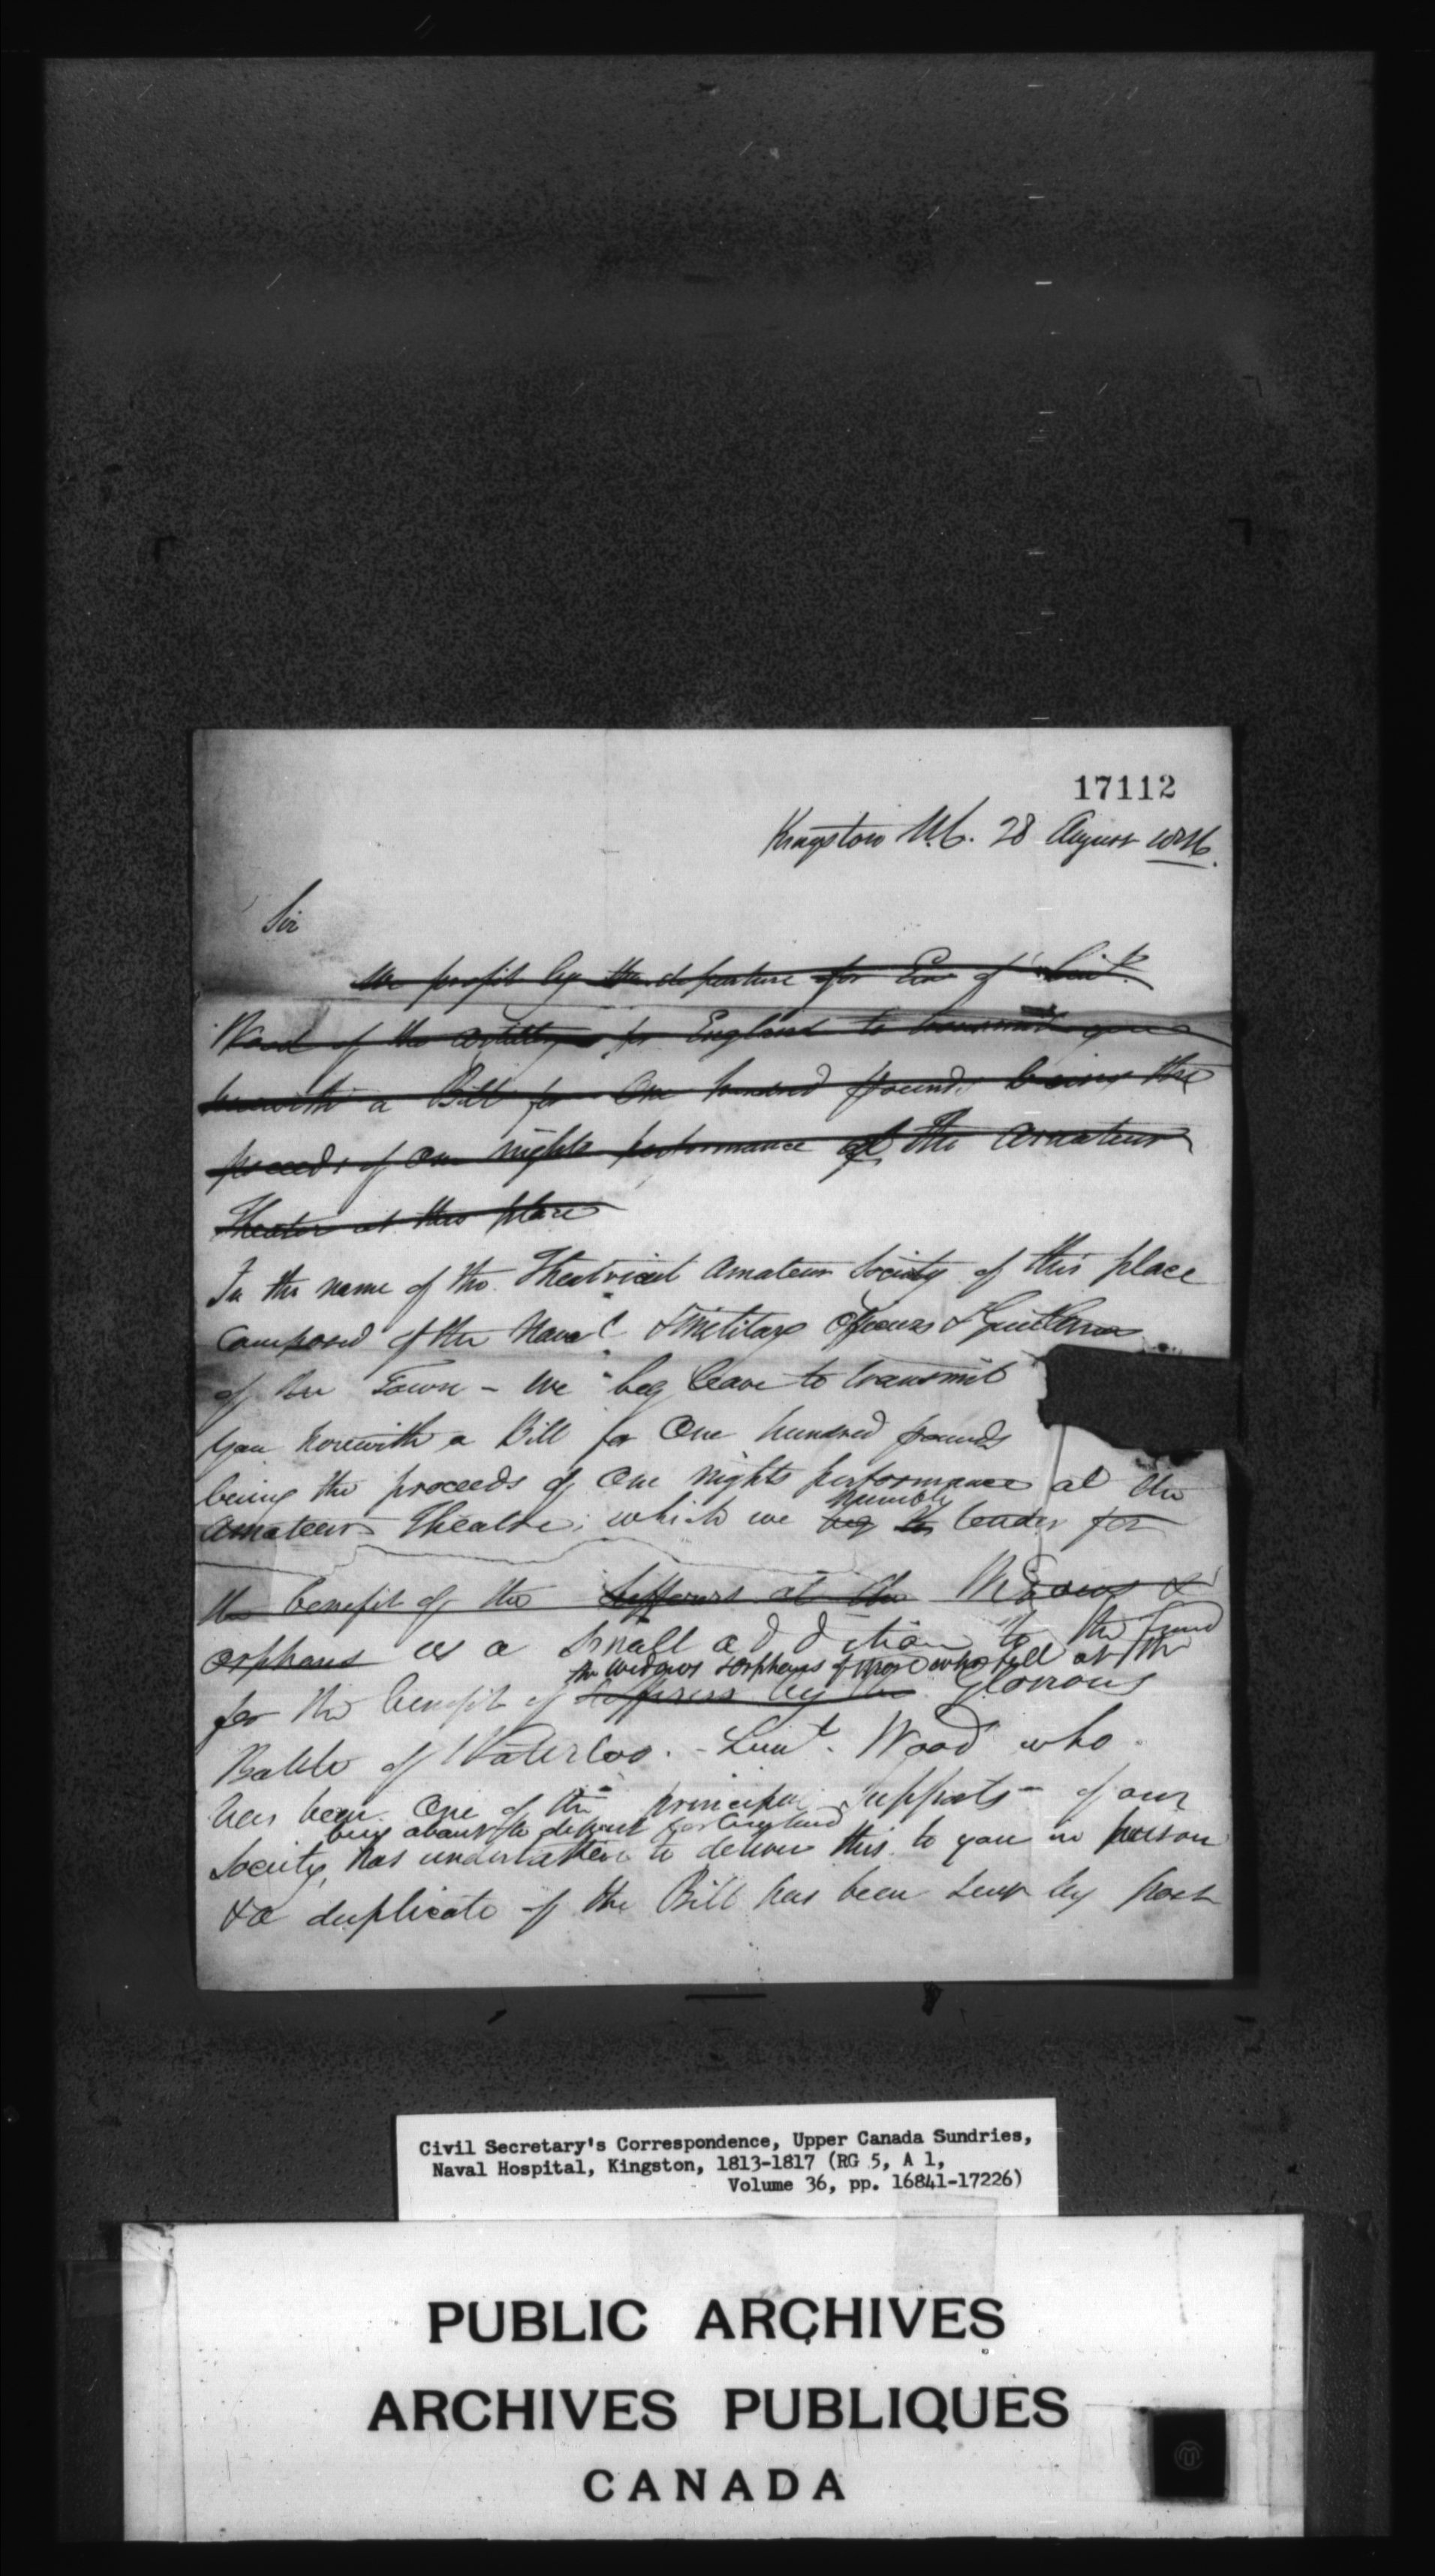 17112
Kingston U.C. 28 August 1816.
Sir
We profit by the departure for Eng of Lieut.
Wood of the Artillery for England to transmit you
herewith a Bill for One hundred pounds being the
proceeds of One nights performance of the Amateur
Theater at this place
In the name of the Theatrical Amateur Society of this place
Composed of the Naval & Military Officers & Gentlemen
of the Town - We beg leave to transmit
you herewith a Bill for One hundred pounds
being the proceeds of One nights performance at the
humbly
Amateur Theatre; which we beg to tender for
the benefit of the sufferers at the Widows &
orphans as a small addition to the fund
the widows & orphans of those who fell at the
for the benefit of sufferers by the Glorious
Battle of Waterloo. - Lieut. Wood who
has been One of the principal supports of our
being about to depart for England
Society, has undertaken to deliver this to you in person
& a duplicate of the Bill has been sent by post
Civil Secretary's Correspondence, Upper Canada Sundries,
Naval Hospital, Kingston, 1813-1817 (RG 5, A 1,
Volume 36, pp. 16841-17226)
PUBLIC ARCHIVES
ARCHIVES PUBLIQUES
CANADA